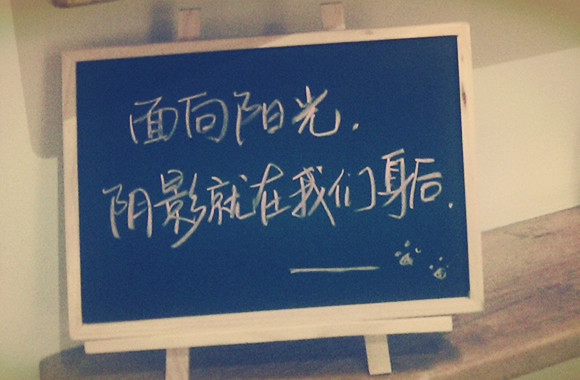 面向阳光.
阴影就在我们身后.